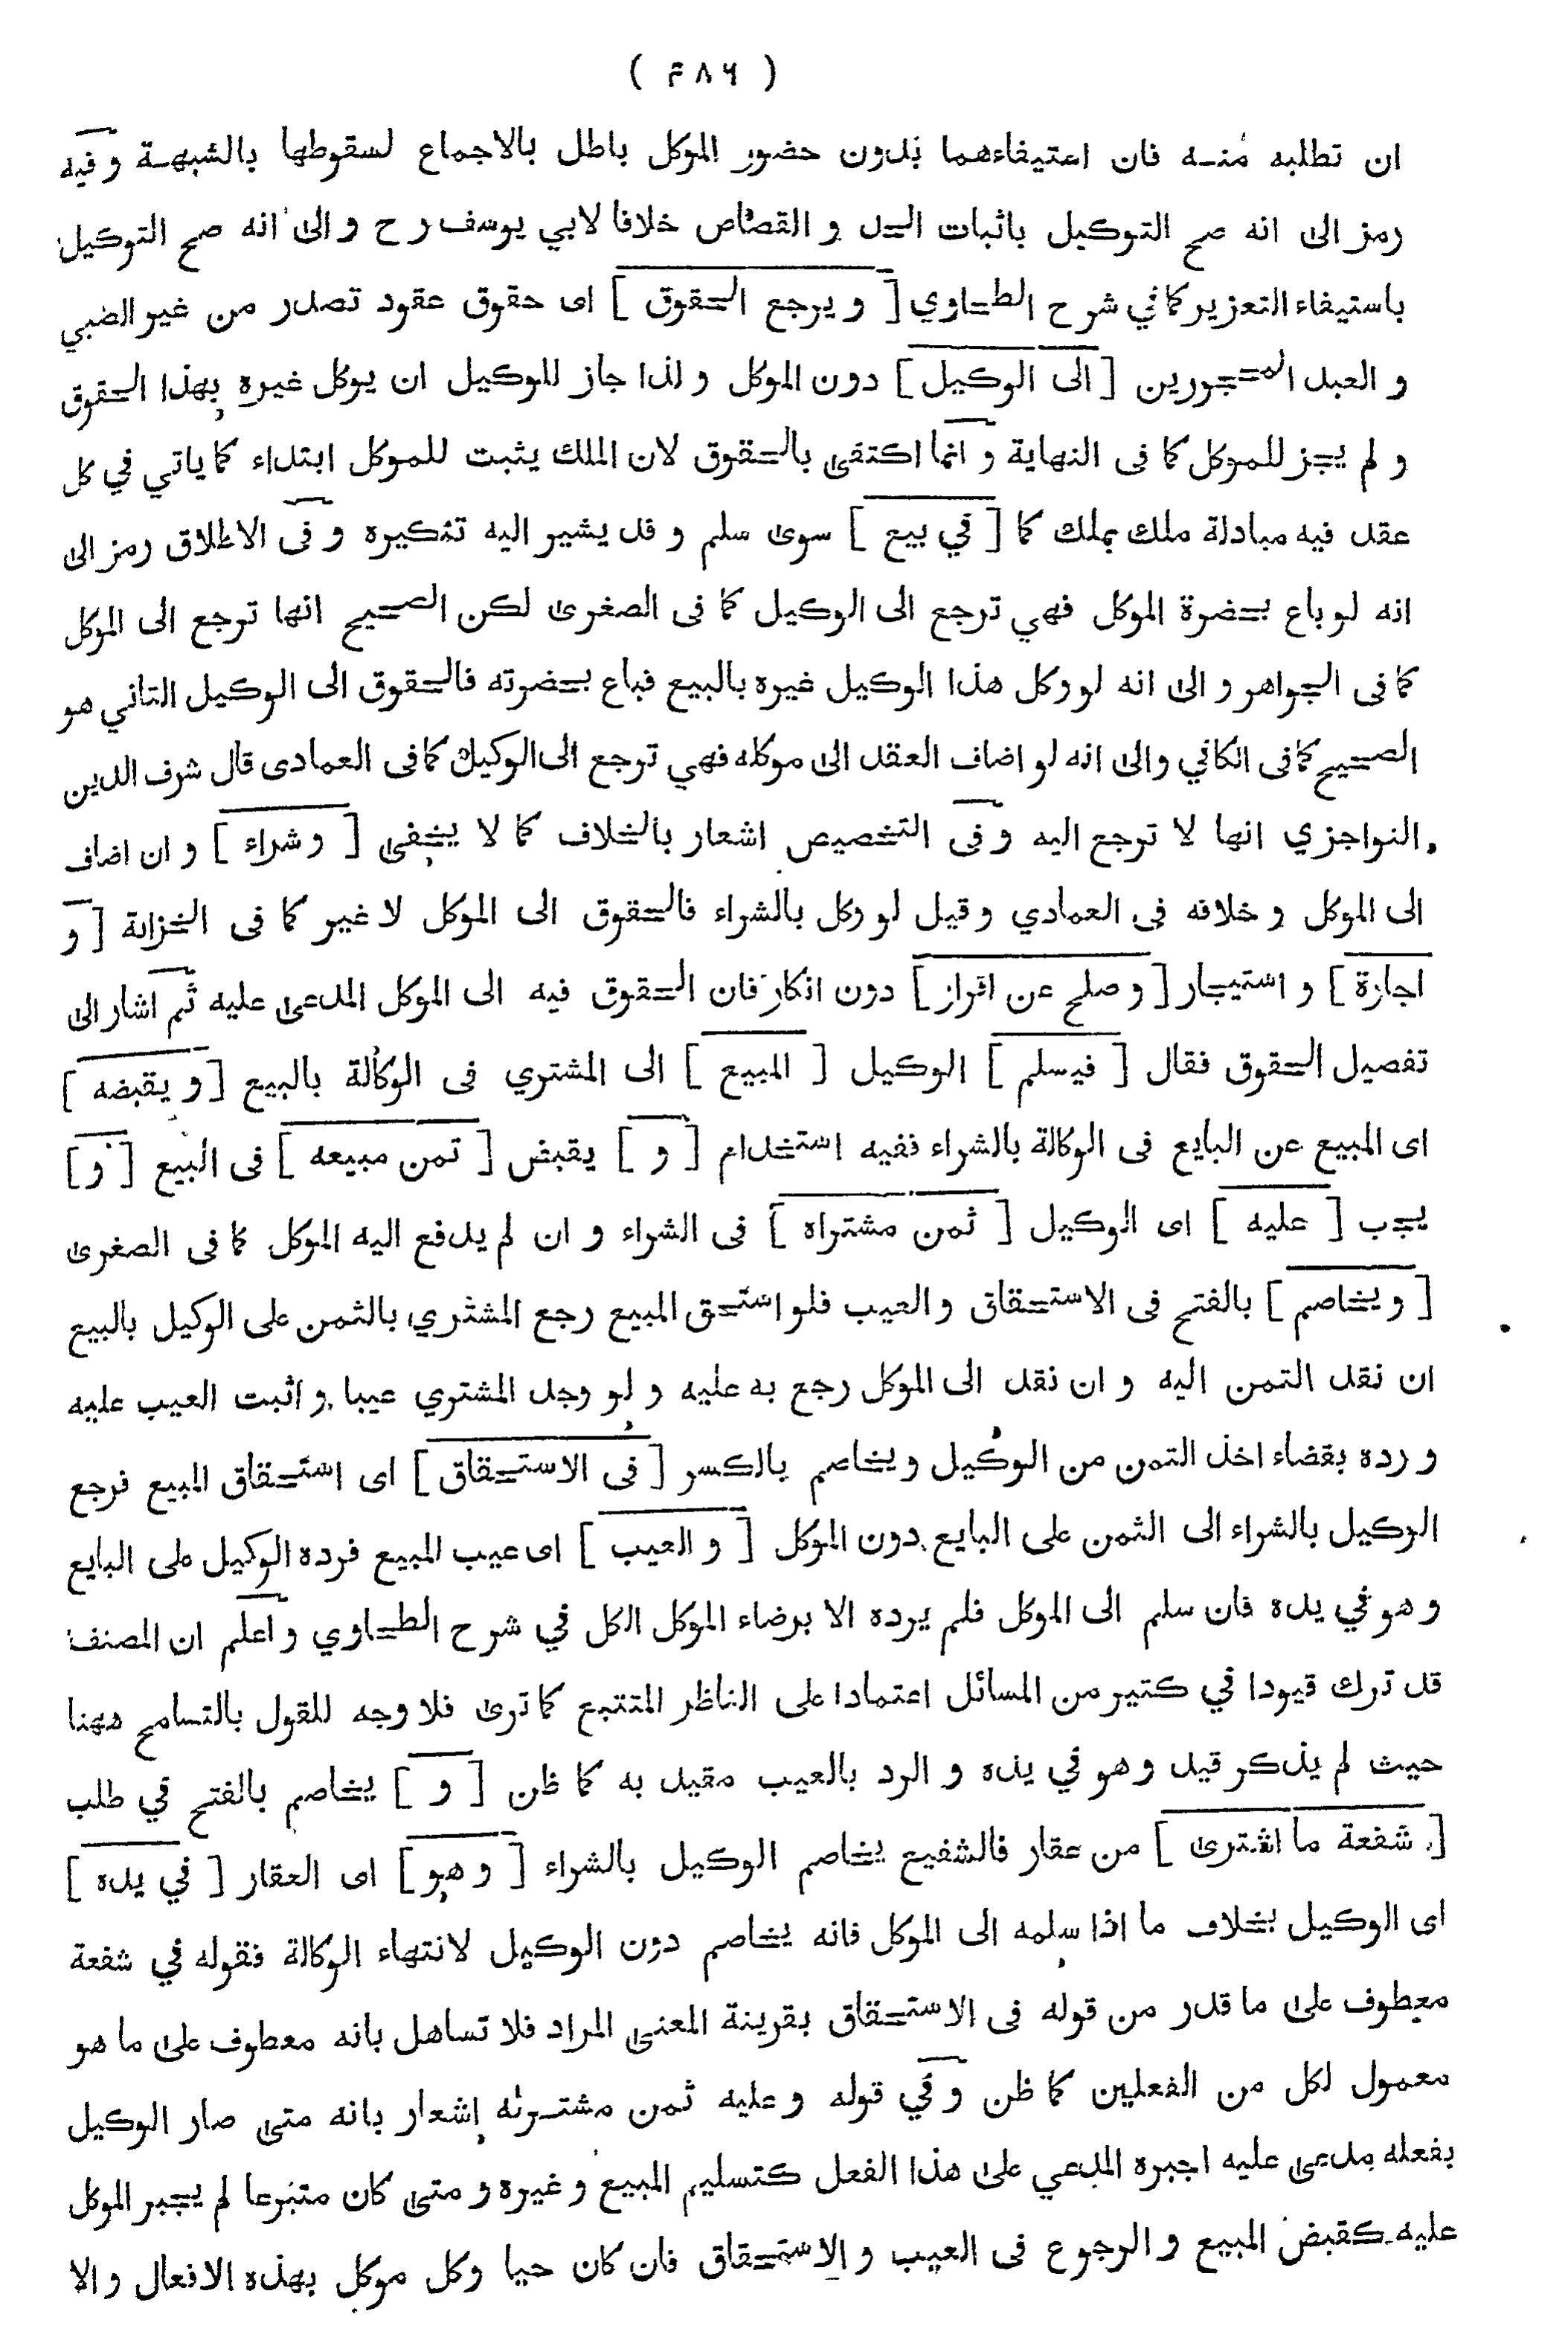 ( ۴۸۶ )
ان تطلبه منه فان استيفاءهما بدون حضور الموكل باطل بالاجماع لسقوطها بالشبهة و فيه
رمز الى انه صح التوكيل باثبات الحد و القصاص خلافا لابي يوسف رح و الى انه صح التوكيل
باستيفاء التعزير كما في شرح الطحاوي [ و يرجع الحقوق ] اى حقوق عقود تصدر من غير الصبي
و العبد المحجورين [ الى الوكيل ] دون الموكل و لذا جاز للوكيل ان يوكل غيره بهذا الحقوق
و لم يجز للموكل كما فى النهاية و انما اكتفى بالحقوق لان الملك يثبت للموكل ابتداء كما ياتي في كل
عقد فيه مبادلة ملك بملك كما [ في بيع ] سوى سلم و قد يشير اليه تنكيره و فى الاطلاق رمز الى
انه لو باع بحضرة الموكل فهي ترجع الى الوكيل كما فى الصغرى لكن الصحيح انها ترجع الى الموكل
كما فى الجواهر و الى انه لو وكل هذا الوكيل غيره بالبيع فباع بحضرته فالحقوق الى الوكيل الثاني هو
الصحيح كما فى الكافي و الى انه لو اضاف العقد الى موكله فهي ترجع الى الوكيل كما فى العمادى قال شرف الدين
النواجزي انها لا ترجع اليه و فى التخصيص اشعار بالخلاف كما لا يخفى [ و شراء ] و ان اضاف
الى الموكل و خلافه فى العمادي و قيل لو وكل بالشراء فالحقوق الى الموكل لا غير كما فى الخزانة [ و
اجارة ] و استيجار [ و صلح عن اقرار ] دون انكار فان الحقوق فيه الى الموكل المدعى عليه ثم اشار الى
تفصيل الحقوق فقال [ فيسلم ] الوكيل [ المبيع ] الى المشتري فى الوكالة بالبيع [ و يقبضه ]
اى المبيع عن البايع فى الوكالة بالشراء ففيه استخدام [ و ] يقبض [ ثمن مبيعه ] فى البيع [ و ]
يجب [ عليه ] اى الوكيل [ ثمن مشتراه ] فى الشراء و ان لم يدفع اليه الموكل كما فى الصغرى
[ و يخاصم ] بالفتح فى الاستحقاق و العيب فلو استحق المبيع رجع المشتري بالثمن على الوكيل بالبيع
ان نقد الثمن اليه و ان نقد الى الموكل رجع به عليه و لو وجد المشتري عيبا و اثبت العيب عليه
و رده بقضاء اخذ الثمن من الوكيل و يخاصم بالكسر [ فى الاستحقاق ] اى استحقاق المبيع فرجع
الوكيل بالشراء الى الثمن على البايع دون الموكل [ و العيب ] اى عيب المبيع فرده الوكيل على البايع
و هو في يده فان سلم الى الموكل فلم يرده الا برضاء الموكل الكل في شرح الطحاوي و اعلم ان المصنف
قد ترك قيودا في كثير من المسائل اعتمادا على الناظر المتتبع كما ترى فلا وجه للقول بالتسامح ههنا
حيث لم يذكر قيد و هو في يده و الرد بالعيب مقيد به كما ظن [ و ] يخاصم بالفتح في طلب
[ شفعة ما اشترى ] من عقار فالشفيع يخاصم الوكيل بالشراء [ و هو ] اى العقار [ في يده ]
اى الوكيل بخلاف ما اذا سلمه الى الموكل فانه يخاصم دون الوكيل لانتهاء الوكالة فقوله في شفعة
معطوف على ما قدر من قوله فى الاستحقاق بقرينة المعنى المراد فلا تساهل بانه معطوف على ما هو
معمول لكل من الفعلين كما ظن و في قوله و عليه ثمن مشتريه إشعار بانه متى صار الوكيل
بفعله مدعى عليه اجبره المدعي على هذا الفعل كتسليم المبيع و غيره و متى كان متبرعا لم يجبر الموكل
عليه كقبض المبيع و الرجوع فى العيب و الاستحقاق فان كان حيا وكل موكل بهذه الافعال و الا